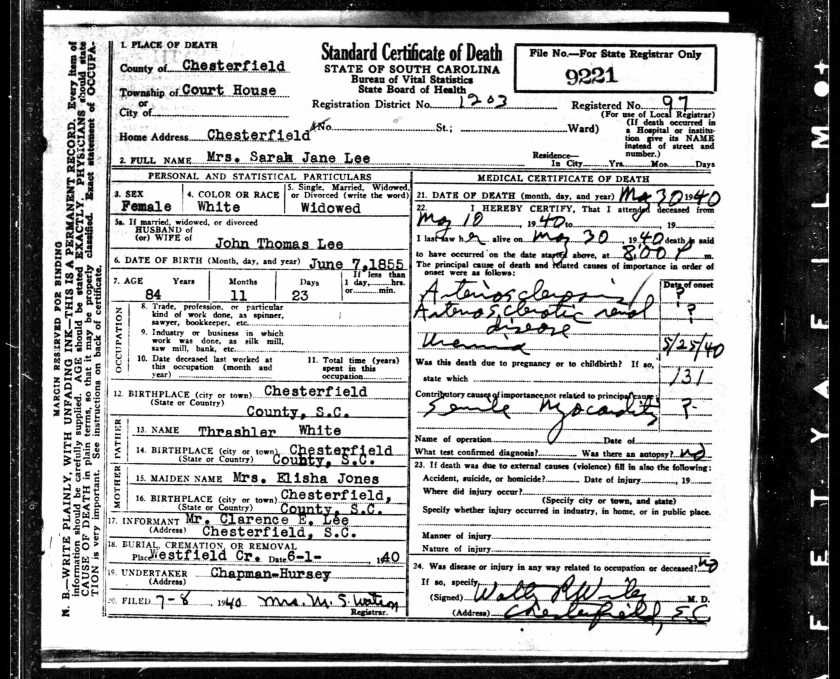 MARGIN RESERVED FOR BINDING
N. B.—WRITE PLAINLY, WITH UNFADING INK—THIS IS A PERMANENT RECORD. Every item of
information should be carefully supplied. AGE should be stated EXACTLY. PHYSICIANS should state
CAUSE OF DEATH in plain terms, so that it may be properly classified. Exact statement of OCCUPA-
TION is very important. See instructions on back of certificate.
1. PLACE OF DEATH
County of Chesterfield
Township of Court House
or
City of
Home Address Chesterfield
Standard Certificate of Death
STATE OF SOUTH CAROLINA
Bureau of Vital Statistics
State Board of Health
Registration District No. 1203
No. St.; Ward)
File No.—For State Registrar Only
9221
Registered No. 97
(For use of Local Registrar)
(If death occurred in
a Hospital or institu-
tion give its NAME
instead of street and
number.)
2. FULL NAME Mrs. Sarah Jane Lee
Residence—
In City Yrs. Mos. Days
PERSONAL AND STATISTICAL PARTICULARS
3. SEX
Female
4. COLOR OR RACE
White
5. Single, Married, Widowed,
or Divorced (write the word)
Widowed
5a. If married, widowed, or divorced
HUSBAND of
(or) WIFE of
John Thomas Lee
6. DATE OF BIRTH (Month, day, and year) June 7, 1855
7. AGE Years Months Days
If less than
1 day, hrs.
or min.
84 11 23
OCCUPATION
8. Trade, profession, or particular
kind of work done, as spinner,
sawyer, bookkeeper, etc.
9. Industry or business in which
work was done, as silk mill,
saw mill, bank, etc.
10. Date deceased last worked at
this occupation (month and
year)
11. Total time (years)
spent in this
occupation
12. BIRTHPLACE (city or town) Chesterfield
(State or Country) County, S.C.
FATHER
13. NAME Thrashler White
14. BIRTHPLACE (city or town) Chesterfield
(State or Country) County, S.C.
MOTHER
15. MAIDEN NAME Mrs. Elisha Jones
16. BIRTHPLACE (city or town) Chesterfield,
(State or Country) County, S.C.
17. INFORMANT Mr. Clarence E. Lee
(Address) Chesterfield, S.C.
18. BURIAL, CREMATION, OR REMOVAL
Place Westfield Cr. Date 6-1- 1940
19. UNDERTAKER Chapman-Hursey
(Address)
20. FILED 7-8, 1940 Mrs. M. S. Watson
Registrar.
MEDICAL CERTIFICATE OF DEATH
21. DATE OF DEATH (month, day, and year) May 30 1940
22. I HEREBY CERTIFY, That I attended deceased from
May 10, 1940 to , 19
I last saw her alive on May 30, 1940 death is said
to have occurred on the date stated above, at 8:00 P m.
The principal cause of death and related causes of importance in order of
onset were as follows:
Date of onset
Arteriosclerosis ?
Arteriosclerotic renal ?
disease
Uremia 5/25/40
Was this death due to pregnancy or to childbirth? If so,
state which 131
Contributory causes of importance not related to principal cause:
Senile Myocarditis ?
Name of operation Date of
What test confirmed diagnosis? Was there an autopsy? no
23. If death was due to external causes (violence) fill in also the following:
Accident, suicide, or homicide? Date of injury , 19
Where did injury occur?
(Specify city or town, and state)
Specify whether injury occurred in industry, in home, or in public place.
Manner of injury
Nature of injury
24. Was disease or injury in any way related to occupation or deceased? no
If so, specify
(Signed) M. D.
(Address) Chesterfield, S.C.
SAFETY FILM